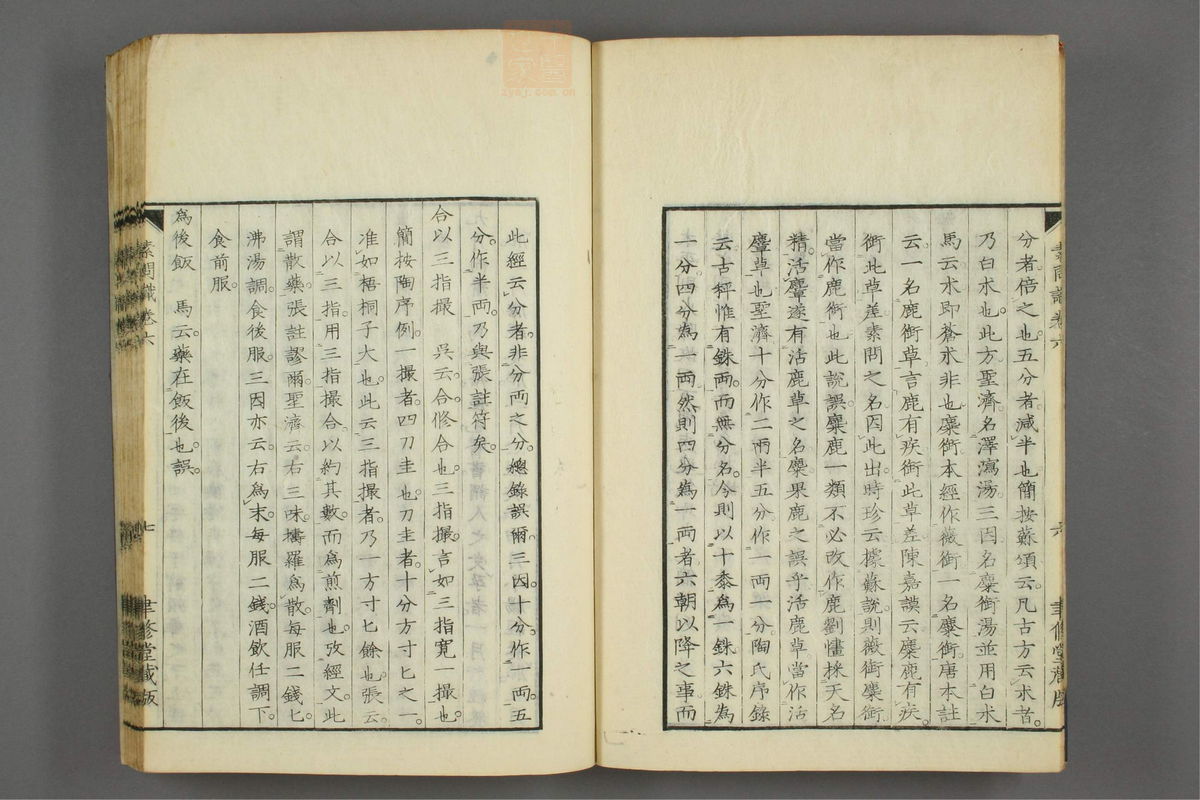 分者倍之也五分者減半也簡按蘇頌云凡古方云朮者
乃白朮也此方聖濟名澤瀉湯三因名麋銜湯並用白朮
馬云朮即蒼朮非也麋銜本經作薇銜一名麋銜唐本註
云一名鹿銜草言鹿有疾銜此草差陳嘉謨云麋鹿有疾
銜此草差素問之名因此出時珍云據蘇說則薇銜麋銜
當作鹿銜也此說誤麋鹿一類不必改作鹿劉㦽採天名
精活麞遂有活鹿草之名麋果鹿之誤乎活鹿草當作活
麞草也聖濟十分作二兩半五分作一兩一分陶氏序錄
云古秤惟有銖兩而無分名今則以十黍為一銖六銖為
一分四分為一兩然則四分為一兩者六朝以降之事而
此經云分者非分兩之分總錄誤爾三因十分作一兩五
分作半兩乃與張註符矣
合以三指撮 吳云合修合也三指撮言如三指寬一撮也
簡按陶序例一撮者四刀圭也刀圭者十分方寸匕之一
准如梧桐子大也此云三指撮者乃一方寸匕餘也張云
合以三指用三指撮合以約其數而為煎劑也攷經文此
謂散藥張註謬爾聖濟云右三味擣羅為散每服二錢匕
沸湯調食後服三因亦云右為末每服二錢酒飲任調下
食前服
為後飯 馬云藥在飯後也誤
素問識卷六
七
聿修堂藏版
素問識卷六
六
聿修堂藏版
zysj.com.cn